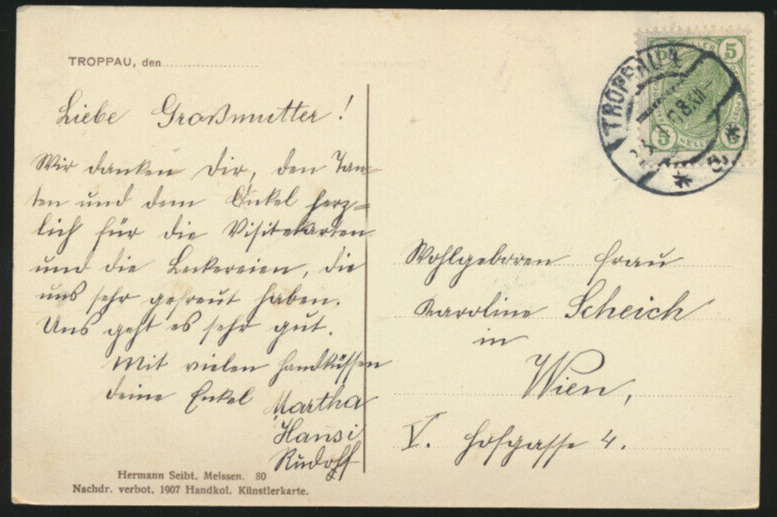 TROPPAU, den
Liebe Großmutter!
Wir danken Dir, den Tan-
ten und dem Onkel herz=
lich für die Visitekarten
und die Leckereien, die
uns sehr gefreut haben.
Uns geht es sehr gut.
Mit vielen Handküssen
deine Enkel Martha
Hansi
Rudolf
Hermann Seibt, Meissen. 80
Nachdr. verbot. 1907 Handkol. Künstlerkarte.
TROPPAU
5 5
5 6
HELLER
Wohlgeboren Frau
Karoline Scheich
in
Wien,
V. Hofgasse 4.